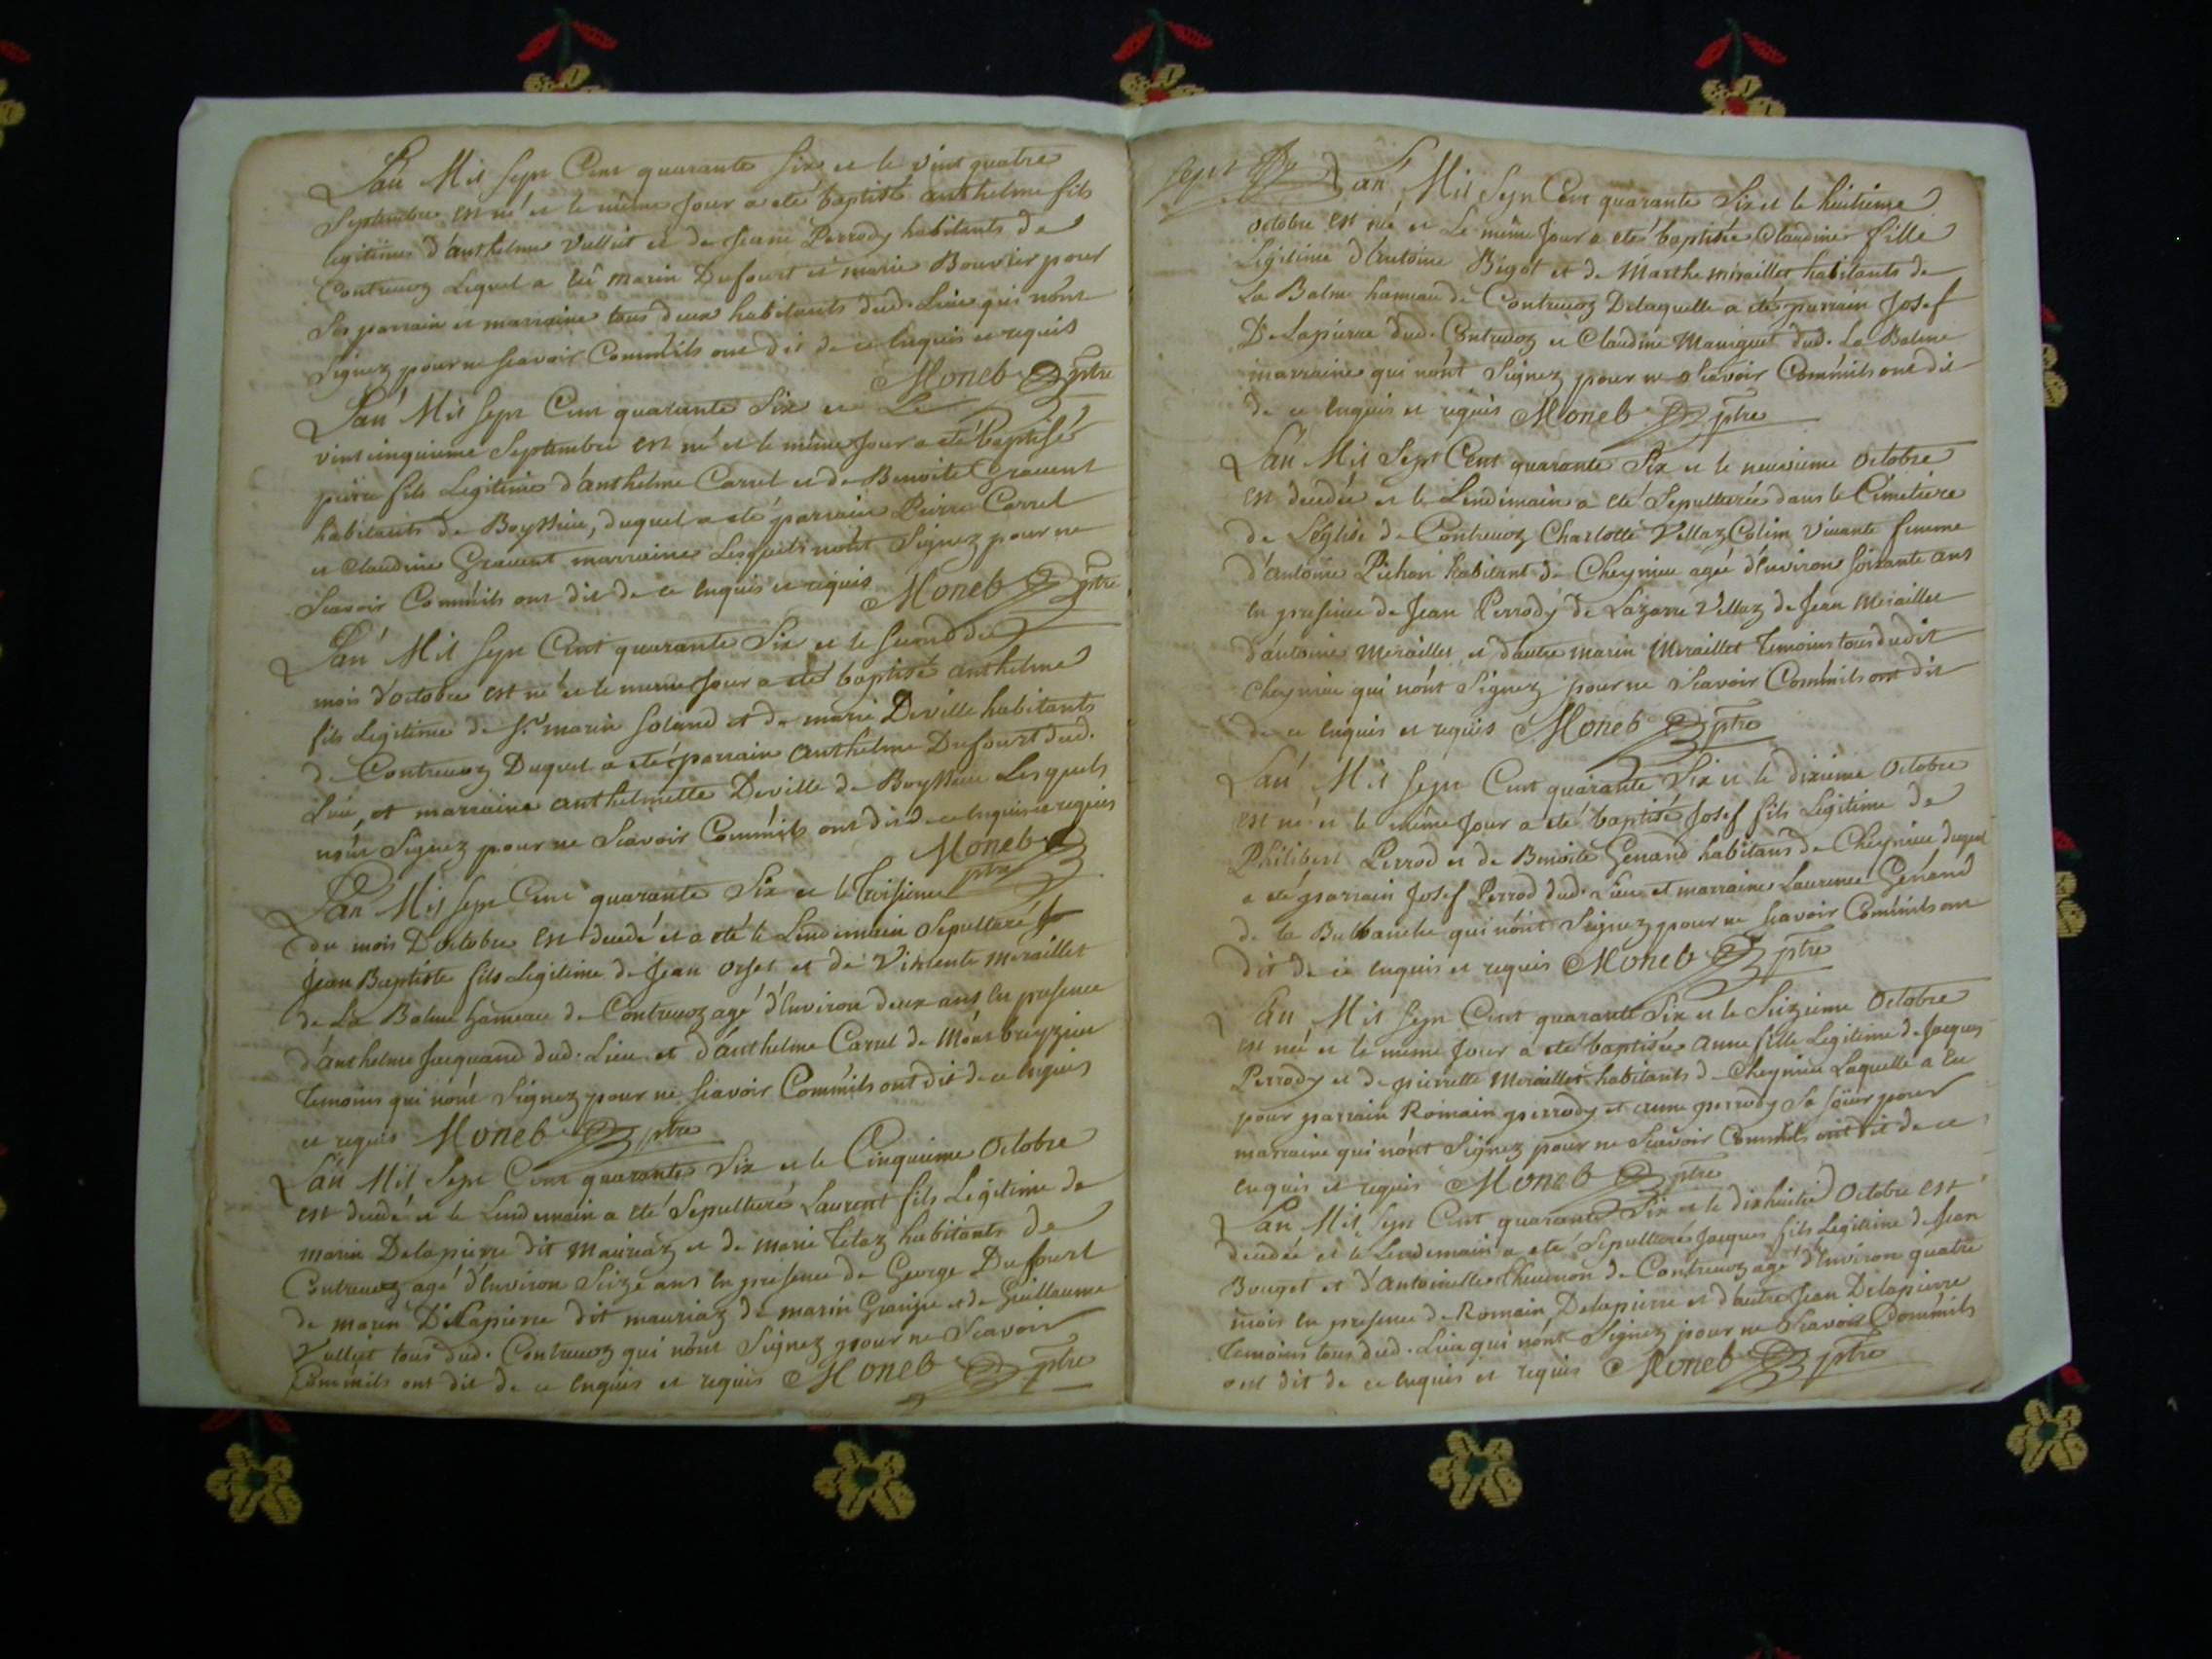 L'an Mil sept Cent quarante six et le vint quatre
Septembre est né et le même Jour a eté baptisé anthelme fils
legitime d'anthelme Vulliet et de Jeane Perrody habitants de
Contrevoz Lequel a Eû marin Dufourt et marie Bouvier pour
Ses parrain et marraine tous deux habitants dud. Lieu qui n'ont
Signez pour ne scavoir Comm'ils ont dit de ce Enquis et requis
Moneb ptre
L'an Mil sept Cent quarante Six et Le
vint cinquieme Septembre est né et le même Jour a eté baptisé
pierre fils Legitime d'anthelme Carrel et de Benoite Gravent
habitants de Boyssieu, duquel a eté parrain Pierre Carrel
et Claudine Gravent marraine Lesquels n'ont Signez pour ne
Scavoir Comm'ils ont dit de ce Enquis et requis Moneb ptre
L'an Mil sept Cent quarante Six et le second du
mois d'octobre est né et le meme Jour a eté baptisé anthelme
fils Legitime de Sr. marin Soland et de marie Deville habitants
de Contrevoz Duquel a eté parrain anthelme Dufourt dud.
Lieu, et marraine anthelmette Deville de Boyssieu Lesquels
n'ont Signez pour ne Scavoir Comm'ils ont dit de ce Enquis et requis
Moneb ptre
L'an Mil sept Cent quarante Six et le Troisieme
du mois D'octobre est decedé et a eté le Lendemain Sepulturé
Jean Baptiste fils Legitime de Jean orset et de Vincente Meraillet
de La Balme hameau de Contrevoz agé d'Environ deux ans En presence
d'anthelme Jacquand dud. Lieu et d'anthelme Carrel de Montbreyzieu
Temoins qui n'ont Signez pour ne scavoir Comm'ils ont dit de ce Enquis
et requis Moneb ptre
L'an Mil Sept Cent quarante Six et le Cinquieme Octobre
est decedé et le Lendemain a eté Sepulturé Laurent fils Legitime de
marin Delapierre dit Mauriaz et de marie Tetaz habitants de
Contrevoz agé d'Environ Seize ans En presence de George Dufourt
de marin Delapierre dit mauriaz de marin Grange et de Guillaume
Vulliet tous dud. Contrevoz qui n'ont Signez pour ne Scavoir
Comm'ils ont dit de ce Enquis et requis Moneb ptre
sept
L'an Mil Sept Cent quarante Six et le huitieme
octobre est née et Le même Jour a eté baptisée Claudine fille
Legitime d'Antoine Bigot et de Marthe miraillet habitants de
La Balme hameau de Contrevoz Delaquelle a eté parrain Josef
DeLapierre dud. Contrevoz et Claudine Maniguet dud. La Balme
marraine qui n'ont Signez pour ne Scavoir Comm'ils ont dit
de ce Enquis et requis Moneb ptre
L'an Mil Sept Cent quarante Six et le neuvieme Octobre
est decedée et le Lendemain a eté Sepulturée dans le Cimetiere
de L'église de Contrevoz Charlotte Vellaz Colin vivante femme
d'antoine Pichon habitant de Cheynieu agée d'Environ soixante ans
En presence de Jean Perrody de Lazarre Vellaz de Jean Meraillet
d'antoine Meraillet et d'autre marin Meraillet Temoins tous dudit
Cheynieu qui n'ont Signez pour ne Scavoir Comm'ils ont dit
de ce Enquis et requis Moneb ptre
L'an Mil Sept Cent quarante Six et le dixieme Octobre
est né et le même Jour a eté baptisé Josef fils Legitime de
Philibert Perrod et de Benoite Genand habitans de Cheynieu duquel
a eté parrain Josef Perrod dud. Lieu et marraine Laurence Genand
de la qui n'ont Signez pour ne scavoir Comm'ils ont
dit de ce Enquis et requis Moneb ptre
L'an Mil Sept Cent quarante Six et le Sizieme Octobre
est née et le meme Jour a eté baptisée Anne fille Legitime de Jacques
Perrody et de pierrette Meraillet habitants de Cheynieu Laquelle a Eu
pour parrain Romain perrody et anne perrody Sa sœur pour
marraine qui n'ont Signez pour ne Scavoir Comm'ils ont dit de ce
Enquis et requis Moneb ptre
L'an Mil Sept Cent quarante Six et le dixhuitie Octobre est
decedée et le Lendemain a eté Sepulturé Jacques fils Legitime de Jean
Bouget et d'Antoinette Thevenon de Contrevoz agé d'Environ quatre
mois En presence de Romain Delapierre et d'autre Jean Delapierre
Temoins tous dud. Lieu qui n'ont Signez pour ne Scavoir Comm'ils
ont dit de ce Enquis et requis Moneb ptre